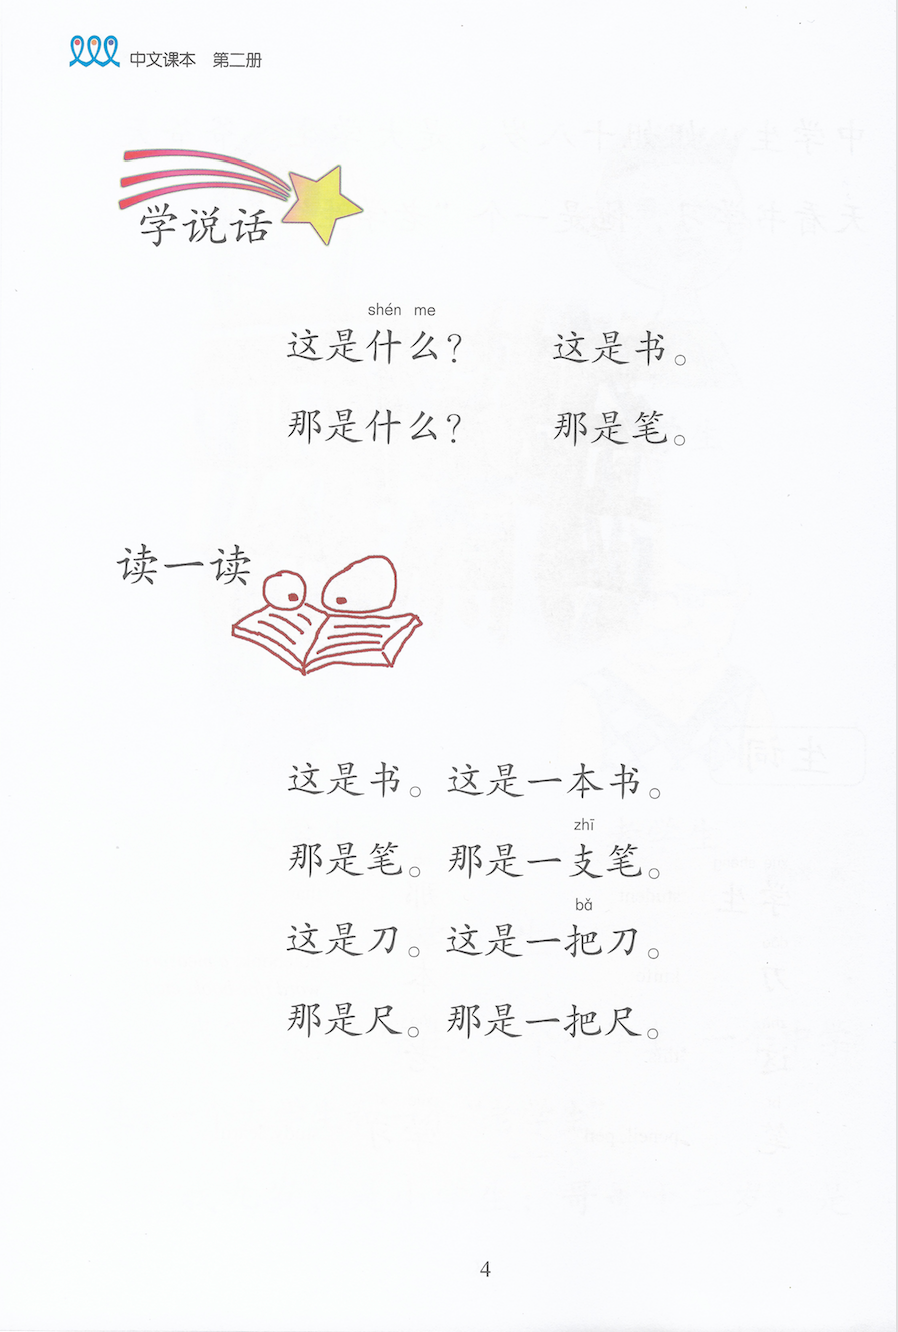 中文课本 第二册
学说话
shén me
这是什么? 这是书。
那是什么? 那是笔。
读一读
这是书。 这是一本书。
zhī
那是笔。 那是一支笔。
bǎ
这是刀。 这是一把刀。
那是尺。 那是一把尺。
4